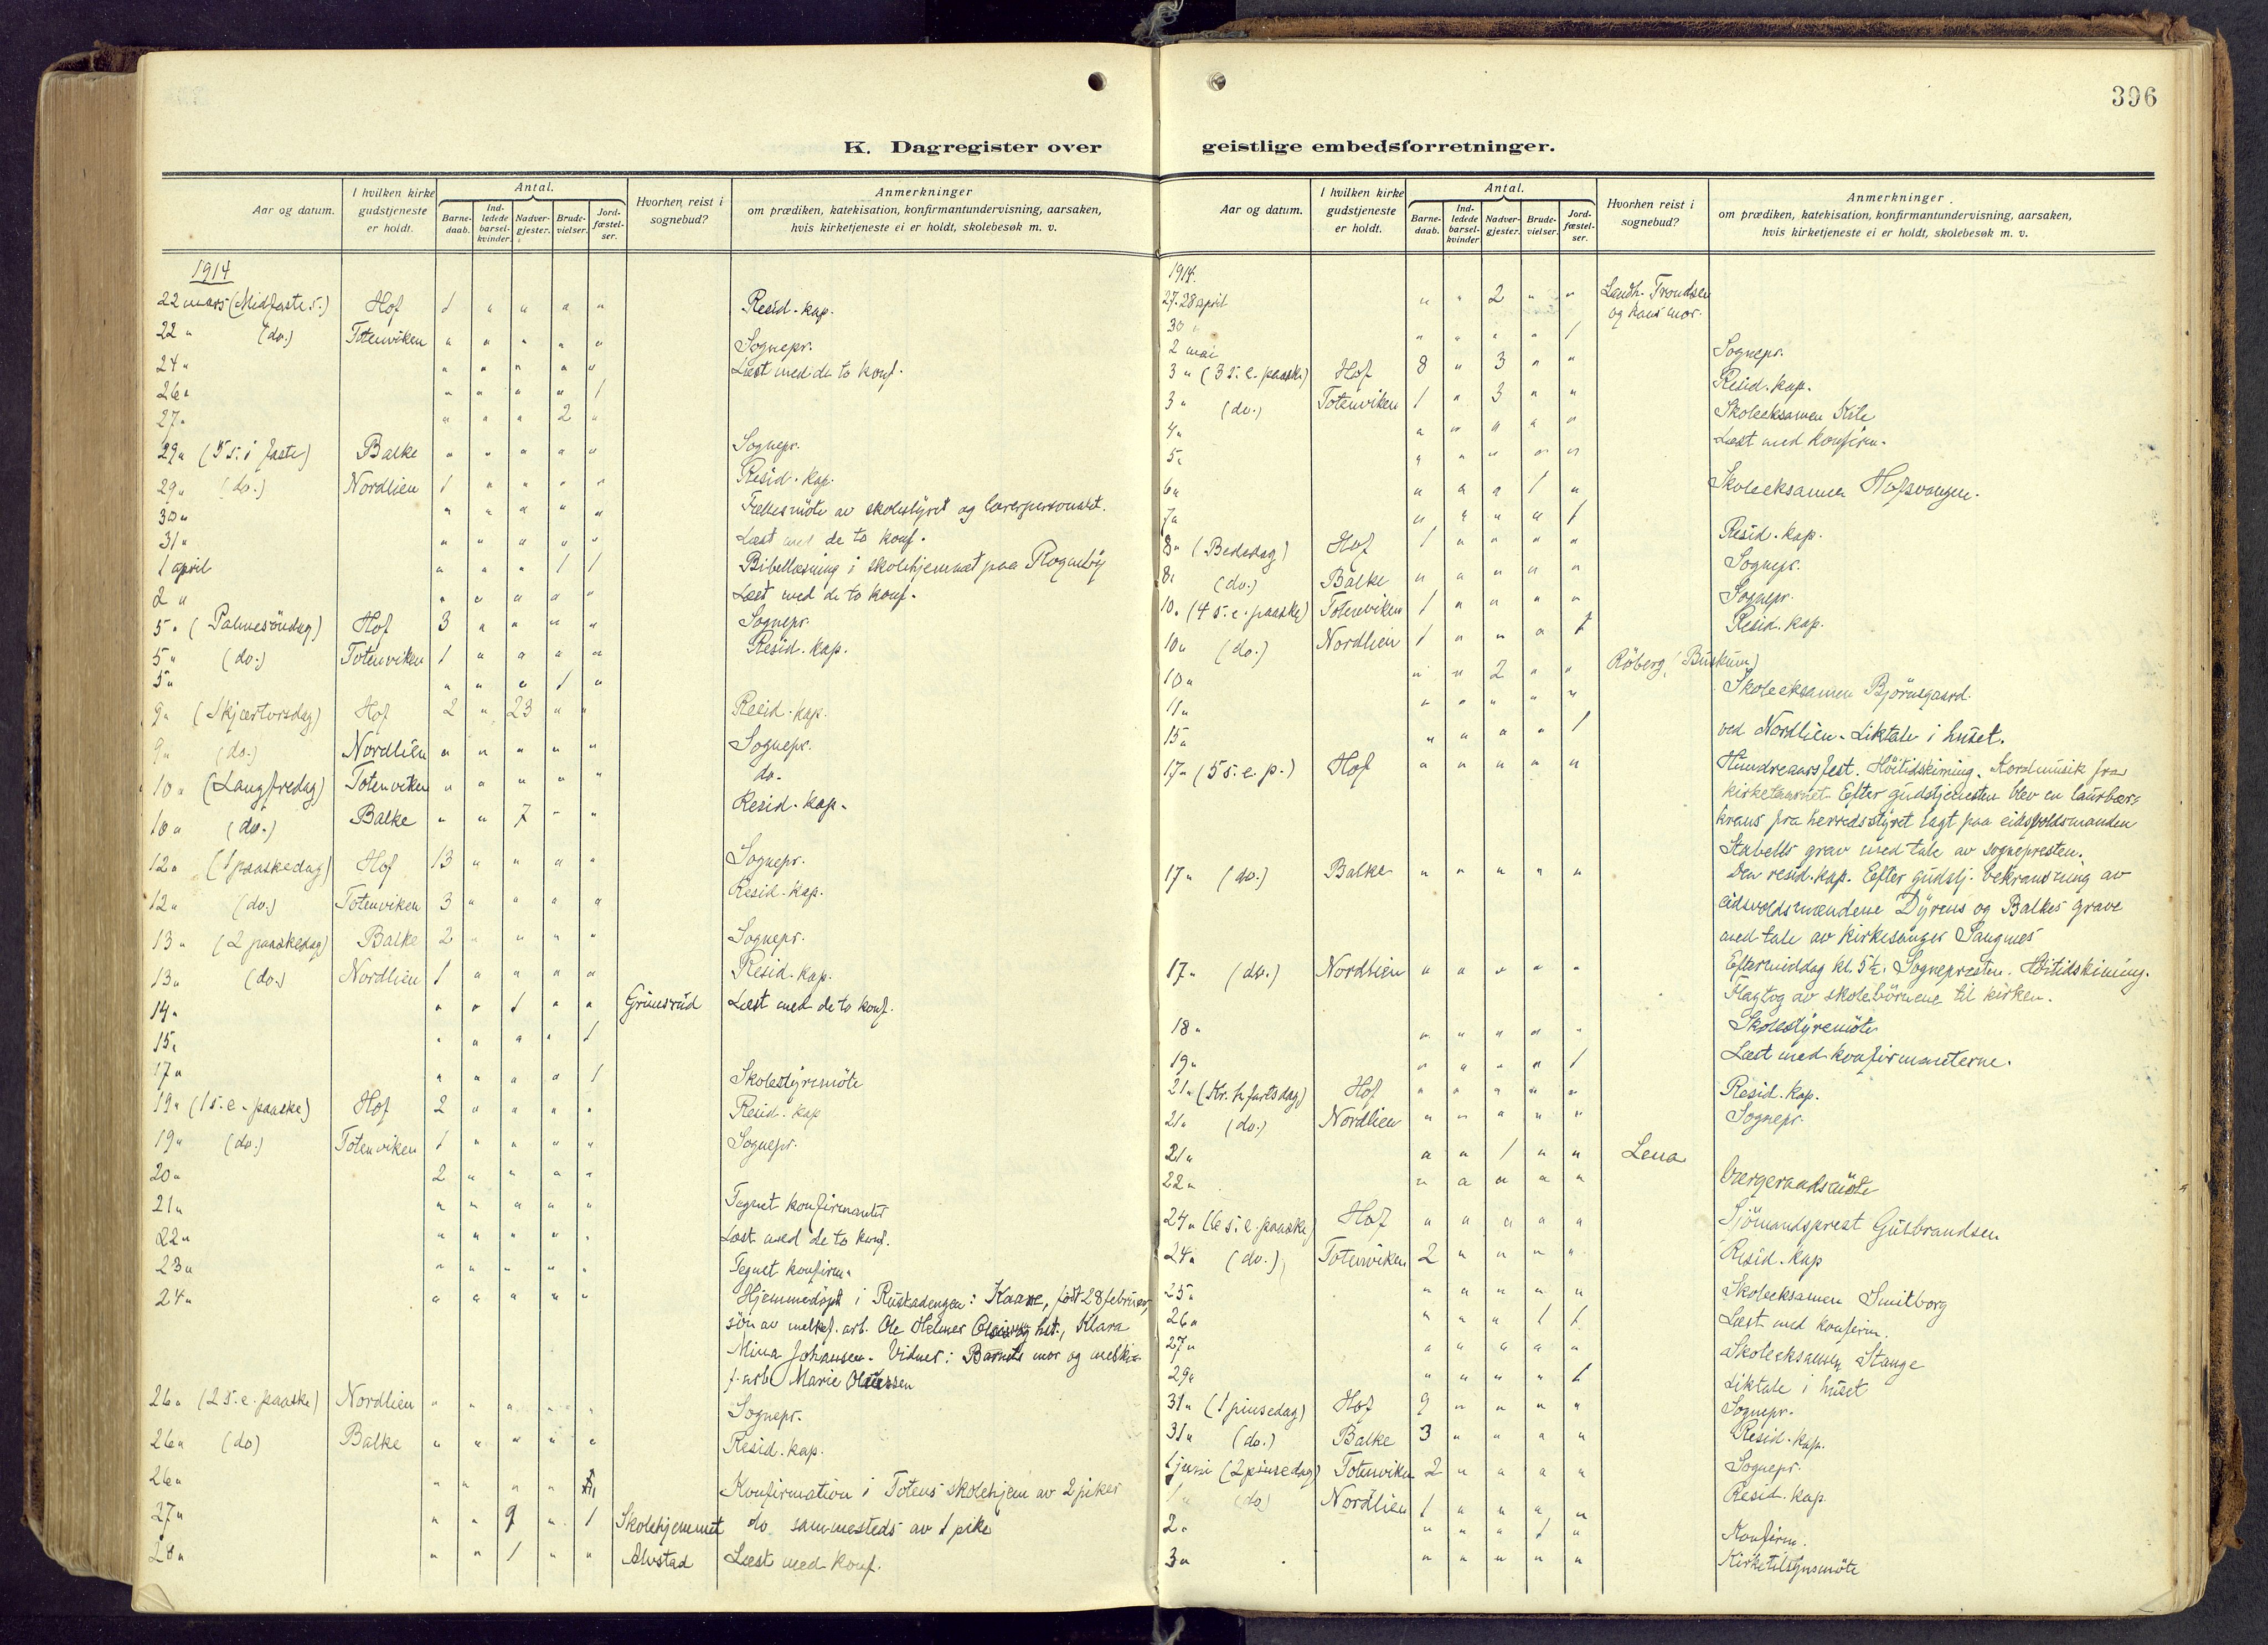 396
K. Dagregister over
Aar og datum.
I hvilken kirke gudstjeneste er holdt.
Antal.
Barne-daab.
Ind-ledede barsel-kvinder.
Nadver-gjester.
Brude-vielser.
Jord-fæstel-ser.
Hvorhen reist i sognebud?
Anmerkninger
om prædiken, katekisation, konfirmantundervisning, aarsaken,
hvis kirketjeneste ei er holdt, skolebesøk m. v.
1914
22 mars (Midfaste s.) Hof 1 " " " " Resid. kap.
22 " (do.) Totenviken " " " " " Sognepr.
24 " " " " " " Læst med de to konf.
26 " " " " " 1
27 " " " " 2 "
29 " (5 s. i faste) Balke " " " " " Sognepr.
29 " (do.) Nordlien 1 " " " " Resid. kap.
30 " " " " " " Fællesmöte av skolestyret og lærerpersonalet.
31 " " " " " " Læst med de to konf.
1 april " " " 1 1 Bibellæsning i skolehjemmet paa
2 " " " " " " Læst med de to konf.
5 " (Palmesöndag) Hof 3 " " " " Sognepr.
5 " (do.) Totenviken 1 " " " " Resid. kap.
5 " " " " 1 "
9 " (Skjærtorsdag) Hof 2 " 23 " " Resid. kap.
9 " (do.) Nordlien " " " " " Sognepr.
10 " (Langfredag) Totenviken " " " " " do.
10 " (do.) Balke " " 7 " " Resid. kap.
12 " (1 paaskedag) Hof 13 " " " " Sognepr.
12 " (do.) Totenviken 3 " " " " Resid. kap.
13 " (2 paaskedag) Balke 2 " " " " Sognepr.
13 " (do.) Nordlien 1 " " " " Resid. kap.
14 " " " 1 " " Grimsrud Læst med de to konf.
15 " " " " " 1
17 " " " " " 1 Skolestyremöte
19 " (1 s. e. paaske) Hof 2 " " " " Resid. kap
19 " (do.) Totenviken 1 " " " " Sognepr.
20 " 2 " " " "
21 " " " " " " Tegnet konfirmanter
22 " " " " " " Læst med de to konf.
23 " " " " " " Tegnet konfirm.
24 " " " " " " Hjemmedöpt i Rustadengen: Kaare, født 28 februar,
sön av melkef. arb. Ole Helmer og hst., Klara
Mina Johansen. Vidner: Barnets mor og melke-
f. arb. Marie
26 " (2 s. e. paaske) Nordlien " " " " " Sognepr.
26 " (do) Balke " " " " " Resid. kap.
26 " " " " " Konfirmation i Totens skolehjem av 2 piker
27 " " " 9 " 1 Skolehjemmet do sammesteds av 1 pike
28 " " " 1 " " Alvstad Læst med konf.
geistlige embedsforretninger.
Aar og datum.
I hvilken kirke gudstjeneste er holdt.
Antal.
Barne-daab.
Ind-ledede barsel-kvinder
Nadver-gjester.
Brude-vielser.
Jord-fæstel-ser.
Hvorhen reist i sognebud?
Anmerkninger.
om prædiken, katekisation, konfirmantundervisning, aarsaken,
hvis kirketjeneste ei er holdt, skolebesøk m. v.
1914.
27.-28 april " " 2 " " Landh. Trondsen
og hans mor.
30 " " " " " 1
2 mai
3 " (3 s. e. paaske) Hof 8 " 3 " " Sognepr.
3 " (do.) Totenviken 1 " 3 " " Resid. kap.
4 " " " " " " Skoleeksamen Kile
5 " " " " " " Læst med konfirm.
6 " " " " 1 " Skoleeksamen Hofsvangen.
7 " " " " " 1
8 " (Bededag) Hof 1 " " " " Resid. kap.
8 " (do.) Balke " " " " " Sognepr.
10 " (4 s. e. paaske) Totenviken 1 " " " " Sognepr.
10 " (do.) Nordlien 1 " " " 1 Resid. kap.
10 " " " 2 " " Röberg (Buskum)
11 " " " " " " Skoleeksamen Björnsgaard.
15 " " " " " 1 ved Nordlien. Liktale i huset.
17 " (5 s. e. p.) Hof " " " " " Hundreaarsfest. Höitidskiming. Kordmusik fra
kirketaarnet. Efter gudstjenesten blev en laurbær-
krans fra herredsstyret lagt paa eidsvoldsmanden
Stabells grav med tale av sognepresten.
17 " (do.) Balke " " " " " Den resid. kap. Efter gudstj. bekransning av
eidsvoldsmændene Dyrens og Balkes grave
med tale av kirkesanger Sangnes
17 " (do.) Nordlien " " " " " Eftermiddag kl. 5½. Sognepresten. Höitidskiming.
Flagtog av skolebörnene til kirken.
18 " " " " " " Skolestyremöte
19 " " " " " 1 Læst med konfirmanterne.
21 " (Kr. h. fartsdag) Hof " " " " " Resid. kap.
21 " (do.) Nordlien " " " " " Sognepr.
21 " " " 1 " " Lena
22 " " " " " " Værgeraadsmöte
24 " (6 s. e. paaske) Hof " " " " " Sjömandsprest Gulbrandsen
24 " (do.) Totenviken 2 " " " " Resid. kap
25 " " " " " " Skoleeksamen Smitborg
26 " " " " 1 1 Læst med konfirm.
27 " " " " " " Skoleeksamen Stange
29 " " " " " 1 Liktale i huset
31 " (1 pinsedag) Hof 9 " " " " Sognepr.
31 " (do.) Balke 3 " " " " Resid. kap.
1 juni (2 pinsedag) Totenviken 2 " " " " Sognepr.
1 " (do) Nordlien 1 " " " " Resid. kap.
2 " " " " 1 " Konfirm.
3 " " " " " " Kirketilsynsmöte